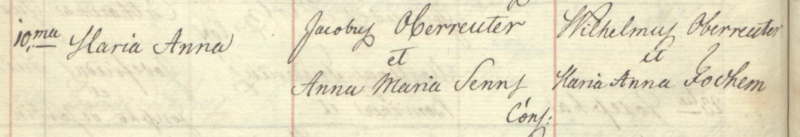 10.ma Maria Anna
Jacobus Oberreuter
et
Anna Maria Senns
Cons:
Wilhelmus Oberreuter
et
Maria Anna Jochem